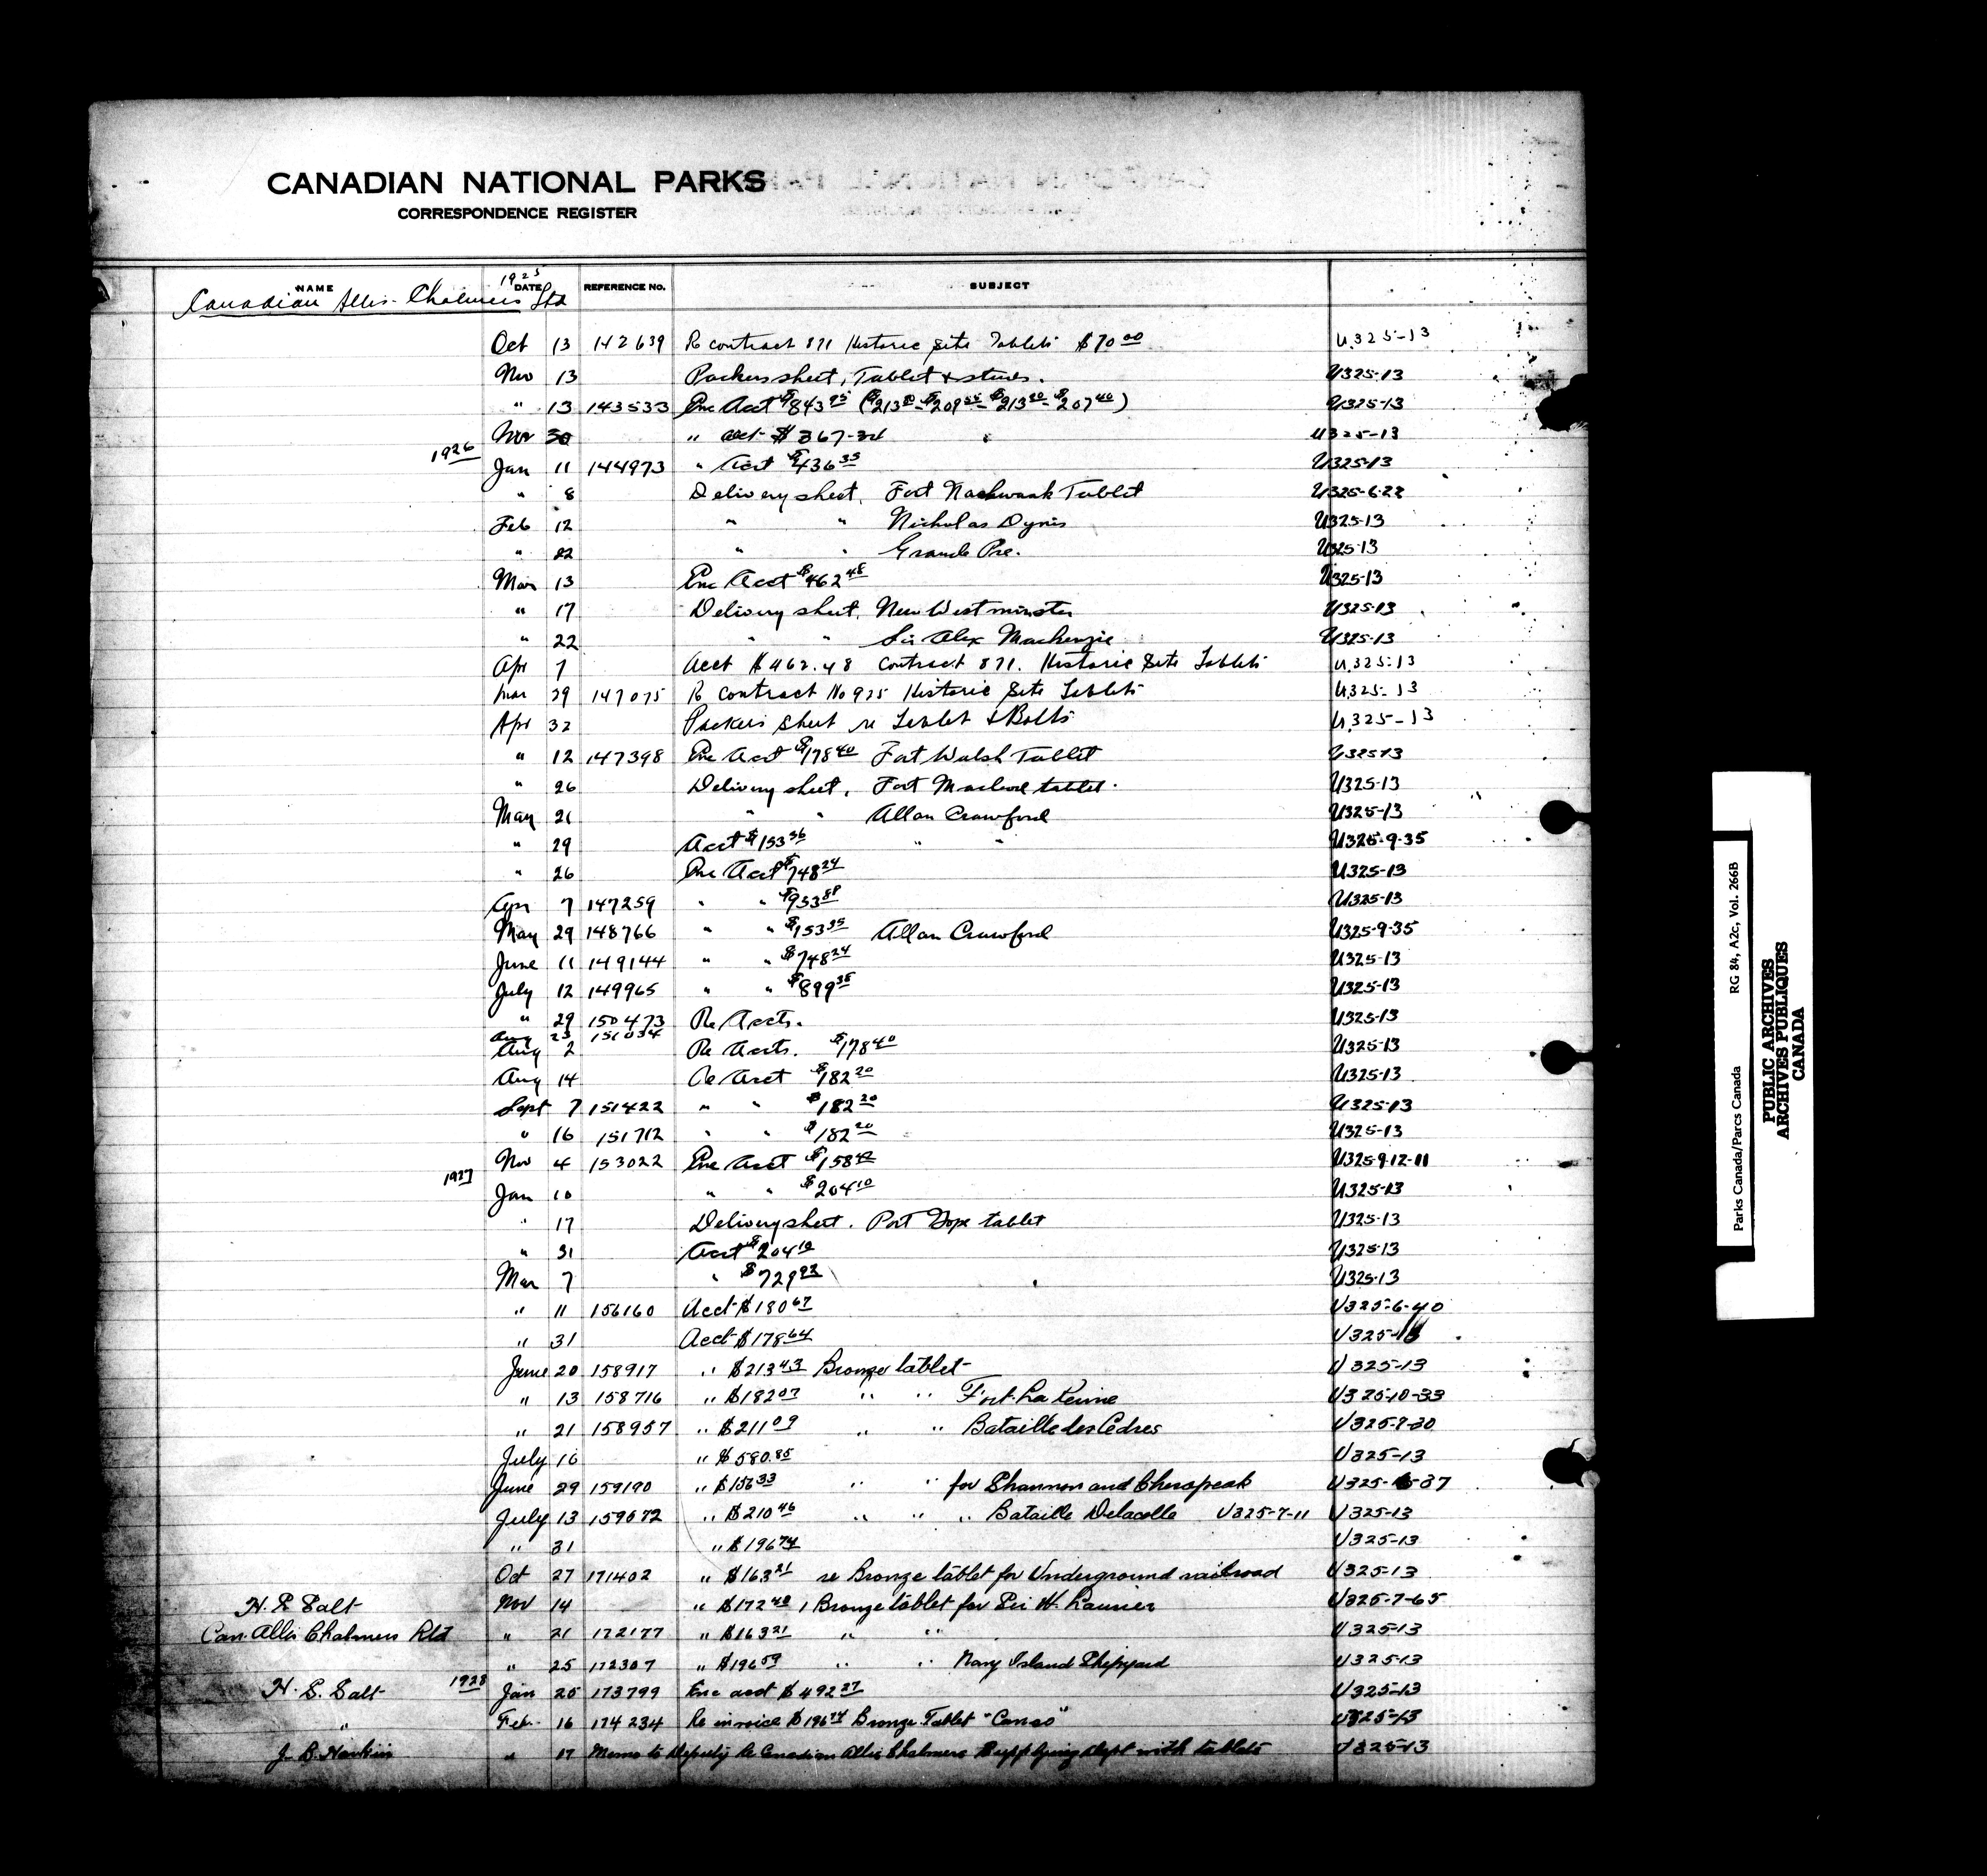 CANADIAN NATIONAL PARKS
CORRESPONDENCE REGISTER
NAME 1925 DATE REFERENCE No. SUBJECT
Canadian Allis-Chalmers Ltd
Oct 13 142639 Re contract 871 Historic Site Tablets $70.00 U.325-13
Nov 13 Packers sheet, Tablet & studs. U325-13
" 13 143533 Enc Acct $843 95 ($213 - $209 - $213 20 - $207 40) U325-13
Nov 30 " acct $367-34 U325-13
1926 Jan 11 144973 " Acct $436 35 U325-13
" 8 Delivery sheet, Fort Nashwaak Tablet U325-6-22
Feb 12 " " Nicholas Dynis U325-13
" 22 " " Grande Pre. U325-13
Mar 13 Enc Acct $462 48 U325-13
" 17 Delivery sheet, New Westminster U325-13
" 22 " " Sir Alex Mackenzie U325-13
Apr 7 Acct $462.48 Contract 871. Historic Site Tablets U.325-13
Mar 29 147075 Re contract No 925 Historic Site Tablets U.325-13
Apr 32 Packers Sheet re Tablet & Bolts U.325-13
" 12 147398 Enc Acct $178 40 Fort Walsh Tablet U325-13
" 26 Delivery sheet, Fort Macleod tablet. U325-13
May 21 " " Allan Crawford U325-13
" 29 Acct $153 36 " " U325-9-35
" 26 Enc Acct $748 24 U325-13
Apr 7 147259 " " $933 88 U325-13
May 29 148766 " " $153 35 Allan Crawford U325-9-35
June 11 149144 " " $748 24 U325-13
July 12 149965 " " $899 38 U325-13
" 29 150473 Re Accts. U325-13
Aug 23 151034
Aug 2 Re Accts. $178 40 U325-13
Aug 14 Re Acct $182 20 U325-13
Sept 7 151422 " " $182 20 U325-13
" 16 151712 " " $182 20 U325-13
Nov 4 153022 Enc Acct $158 42 U325-9-12-11
1927 Jan 10 " " $204 10 U325-13
" 17 Delivery sheet. Port Hope tablet U325-13
" 31 Acct $204 10 U325-13
Mar 7 " $729 92 U325-13
" 11 156160 Acct $180 67 U325-6-40
" 31 Acct $178 64 U325-13
June 20 158917 " $213 43 Bronze tablet U325-13
" 13 158716 " $182 07 " " Fort La Reine U325-10-33
" 21 158957 " $211 09 " " Bataille des Cedres U325-7-20
July 16 " $580.85 U325-13
June 29 159190 " $156 33 " " for Shannon and Chesapeak U325- -37
July 13 159672 " $210 46 " " " Bataille Delacolle U325-7-11 U325-13
" 31 " $196 74 U325-13
Oct 27 171402 " $163 21 re Bronze tablet for Underground railroad U325-13
H. S. Salt Nov 14 " $172 40 1 Bronze tablet for Sir W. Laurier U325-7-65
Can. Allis Chalmers Ltd " 21 172177 " $163 21 " " U325-13
" 25 172307 " $196 59 " " Navy Island Shipyard U325-13
H. S. Salt 1928 Jan 25 173799 Enc acct $492 27 U325-13
" Feb. 16 174234 Re invoice $196 74 Bronze Tablet "Canso" U325-13
J. B. Harkin " 17 Memo to Deputy Re Canadian Allis Chalmers Supplying Dept with tablets U325-13
Parks Canada/Parcs Canada RG 84, A2c, Vol. 266B
PUBLIC ARCHIVES
ARCHIVES PUBLIQUES
CANADA